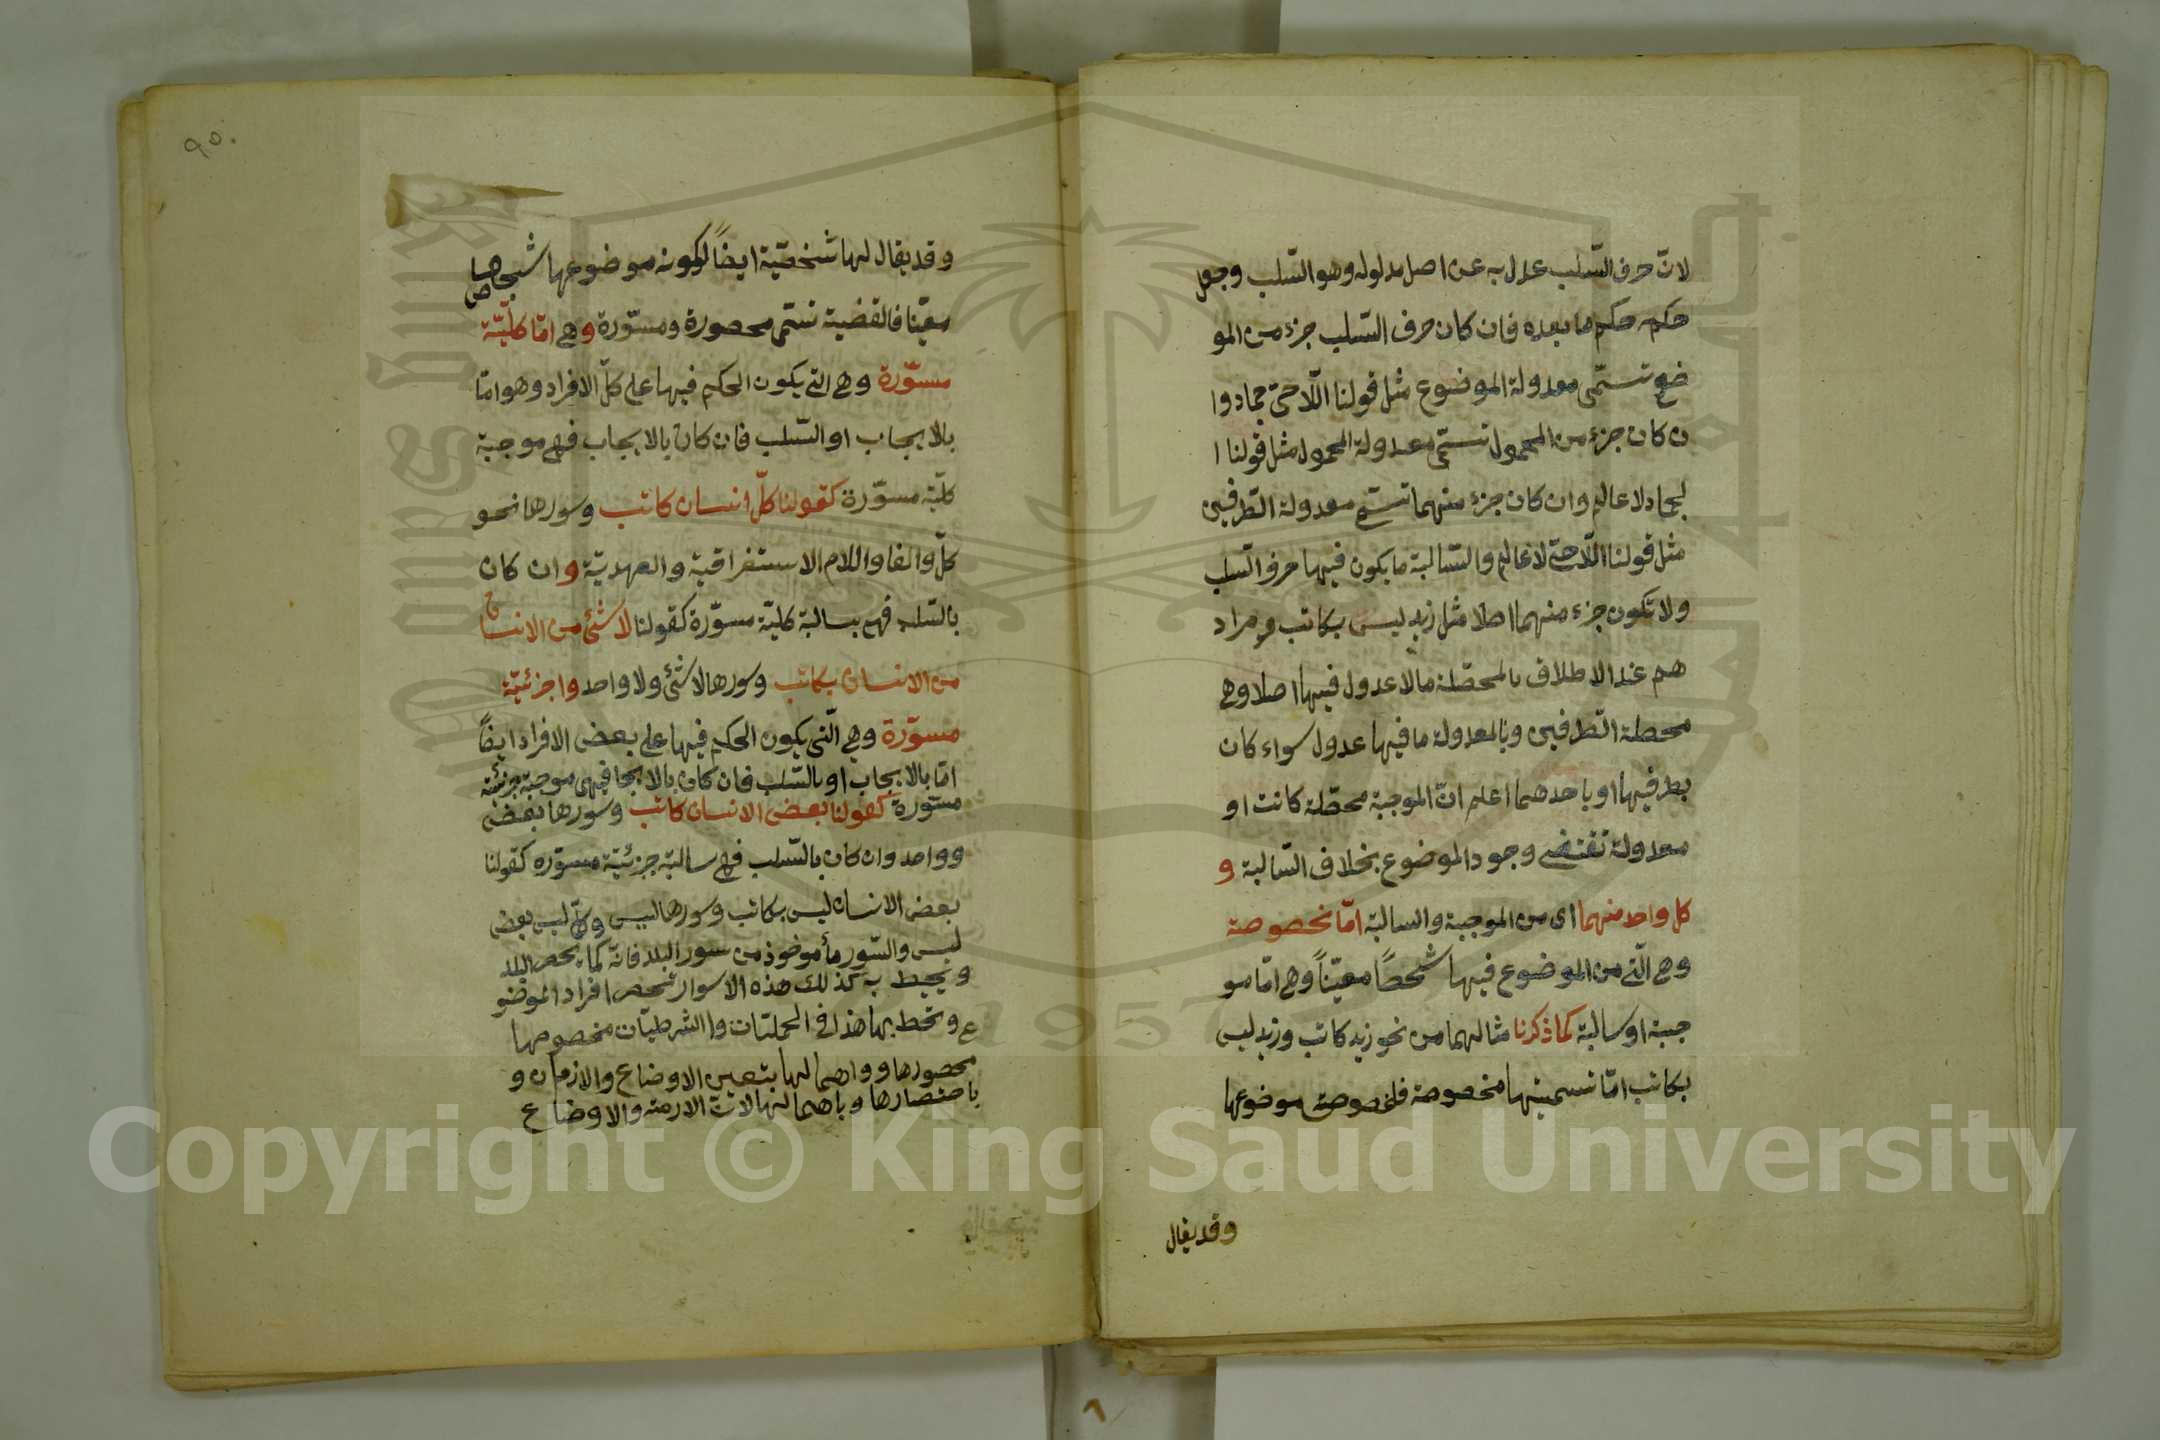 لانّ حرف السّلب عدل به عن اصل مدلوله وهو السّلب وجعل
حكمه حكم ما بعده فان كان حرف السّلب جزء من المو
ضوع تسمّى معدولة الموضوع مثل قولنا اللّاحىّ جماد وا
ن كان جزء من المحمول تسمّى معدولة المحمول مثل قولنا ا
لجماد لا عالم وان كان جزء منهما تسمّى معدولة الطّرفين
مثل قولنا اللّاحىّ لا عالم والسّالبة ما يكون فيها حرف السّلب
ولا تكون جزء منهما اصلا مثل زيد ليس بكاتب ومراد
هم عند الاطلاق بالمحصّلة ما لا عدول فيها اصلا وهى
محصلة الطّرفين وبالمعدولة ما فيها عدول سواء كان
بطرفيها او باحدهما اعلم انّ الموجبة محصّلة كانت او
معدولة تقتضى وجود الموضوع بخلاف السّالبة و
كل واحد منهما اى من الموجبة والسالبة امّا مخصوصة
وهى الّتى من الموضوع فيها شخصًا معيّنًا وهى امّا مو
جبة او سالبة كما ذكرنا مثالهما من نحو زيد كاتب وزيد ليس
بكاتب امّا تسميتها مخصوصة فلخصوصة موضوعها
وقد يقال
٩٥
وقد يقال لها شخصيّة ايضًا لكونه موضوعها شخصا
معيّنا فالقضية تسمّى محصورة ومسوّرة وهى امّا كليّة
مسوّرة وهى التى يكون الحكم فيها على كلّ الافراد وهو امّا
بالايجاب او السّلب فان كان بالايجاب فهى موجبة
كليّة مسوّرة كقولنا كلّ انسان كاتب وسورها نحو
كلّ والف واللام الاستغراقية والعهديّة وان كان
بالسّلب فهى سالبة كليّة مسوّرة كقولنا لا شئ من الانسان
من الانسان بكاتب وسورها لا شئ ولا واحد وا جزئيّة
مسوّرة وهى الّتى يكون الحكم فيها على بعض الافراد ايضًا
امّا بالايجاب او بالسّلب فان كان بالايجا فهى موجبة جزئيّة
مسوّرة كقولنا بعض الانسان كاتب وسورها بعض
وواحد وان كان بالسّلب فهى سالبة جزئيّة مسوّره كقولنا
بعض الانسان ليس بكاتب وسورها ليس وكلّ ليس بعض
ليس والسّور مأخوذ من سور البلد فانّه كما يحصر البلد
ويحيط به كذلك هذه الاسوار تحصر افراد الموضو
ع وتحط بها هذا فى الحمليّات وا الشرطيّات مخصوصها
محصورها وواهمالها بتعين الاوضاع والازمان و
باحتصارها وباهمالها لانّ الازمنة والاوضاع
٨
Copyright © King Saud University
1957